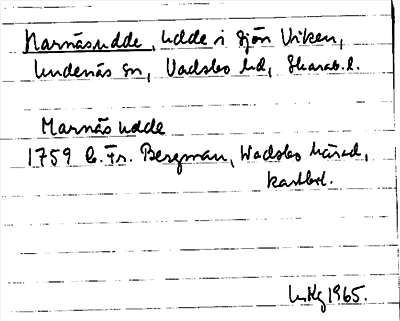 Marnäsudde, udde i sjön Viken,
Undenäs sn, Vadsbo hd, Skarab. l.
Marnäs udde
1759 C. Fr. Bergman, Wadsbo härad,
kartbl.
1965.